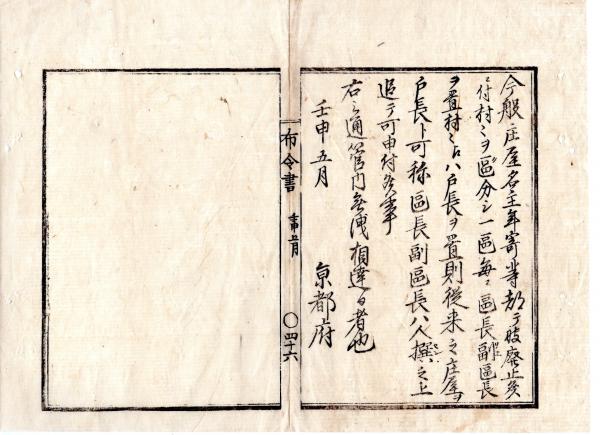 今般庄屋名主年寄等都テ被廃止候
ニ付村々ヲ區分シ一區毎ニ區長副區長
ヲ置村々ニハ戸長ヲ置則従来之庄屋ヲ
戸長ト可称區長副區長ハ人撰之上
追テ可申付候事
右之通管内無洩相達る者也
壬申五月
京都府
布令書
壬申五月
〇四十六